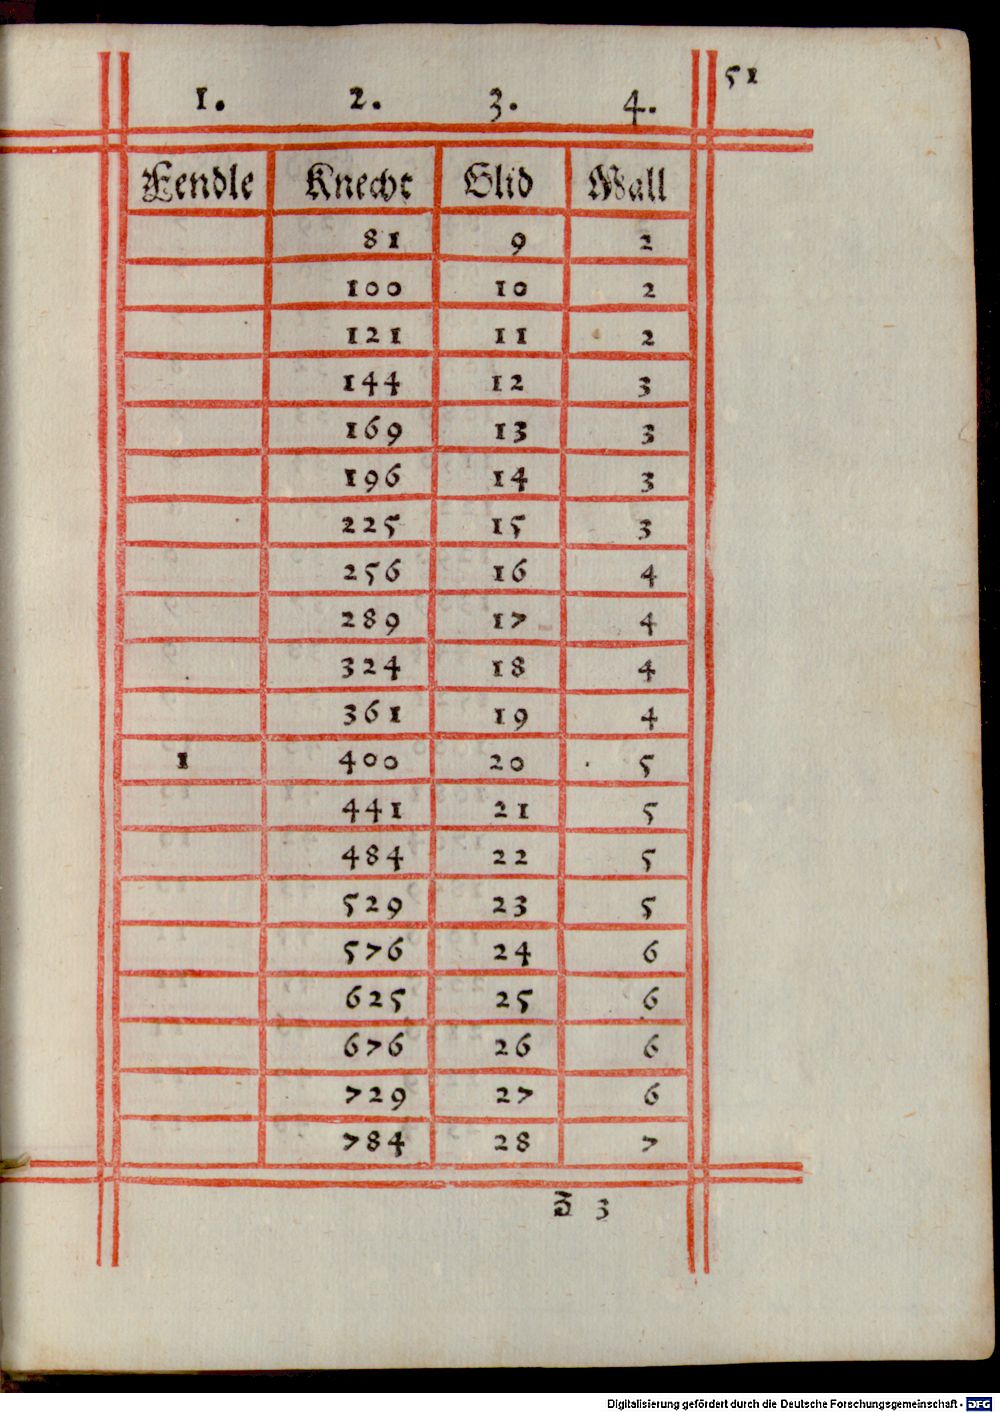 51
1. 2. 3. 4.
Fendle Knecht Glid Wall
81 9 2
100 10 2
121 11 2
144 12 3
169 13 3
196 14 3
225 15 3
256 16 4
289 17 4
324 18 4
361 19 4
1 400 20 5
441 21 5
484 22 5
529 23 5
576 24 6
625 25 6
676 26 6
729 27 6
784 28 7
3
Digitalisierung gefördert durch die Deutsche Forschungsgemeinschaft - DFG